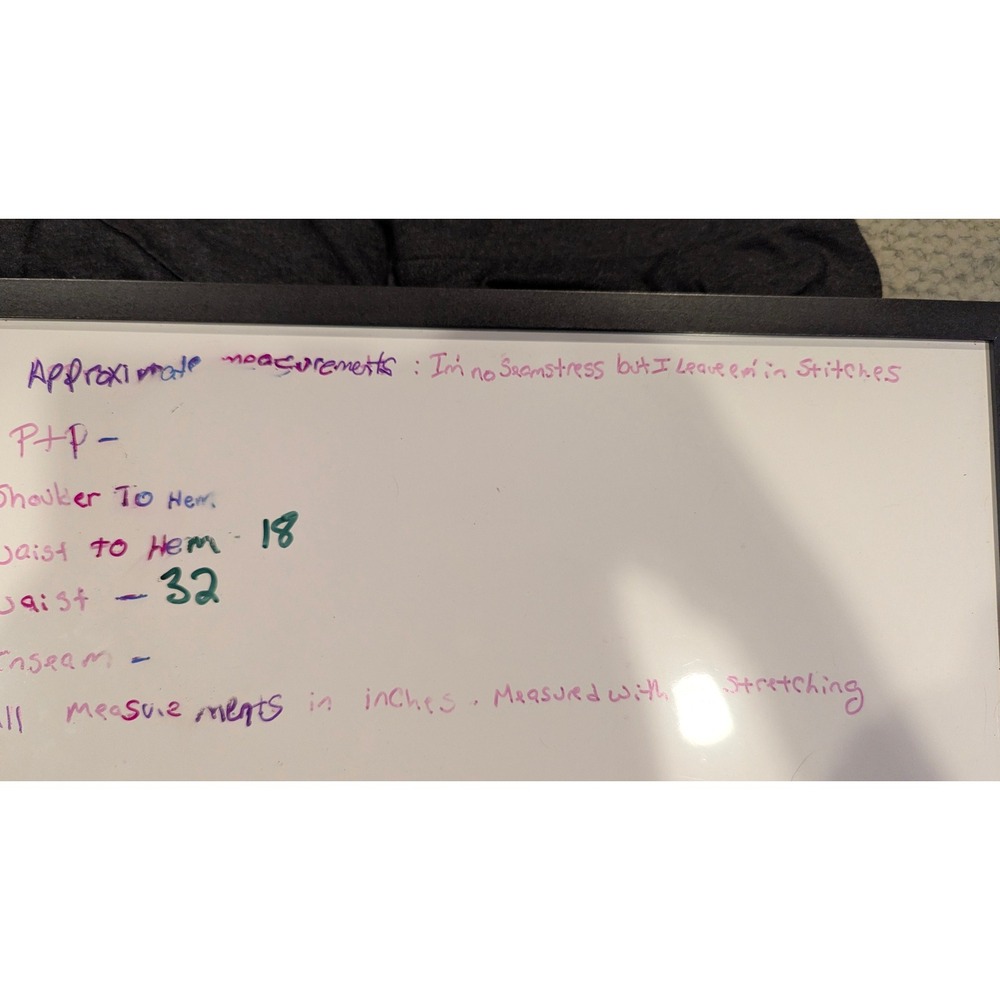 Approximate measurements : I'm no Seamstress but I Leave em in Stitches
P+P -
Shoulder To Hem
waist to Hem - 18
waist - 32
Inseam -
All measurements in inches. Measured with stretching